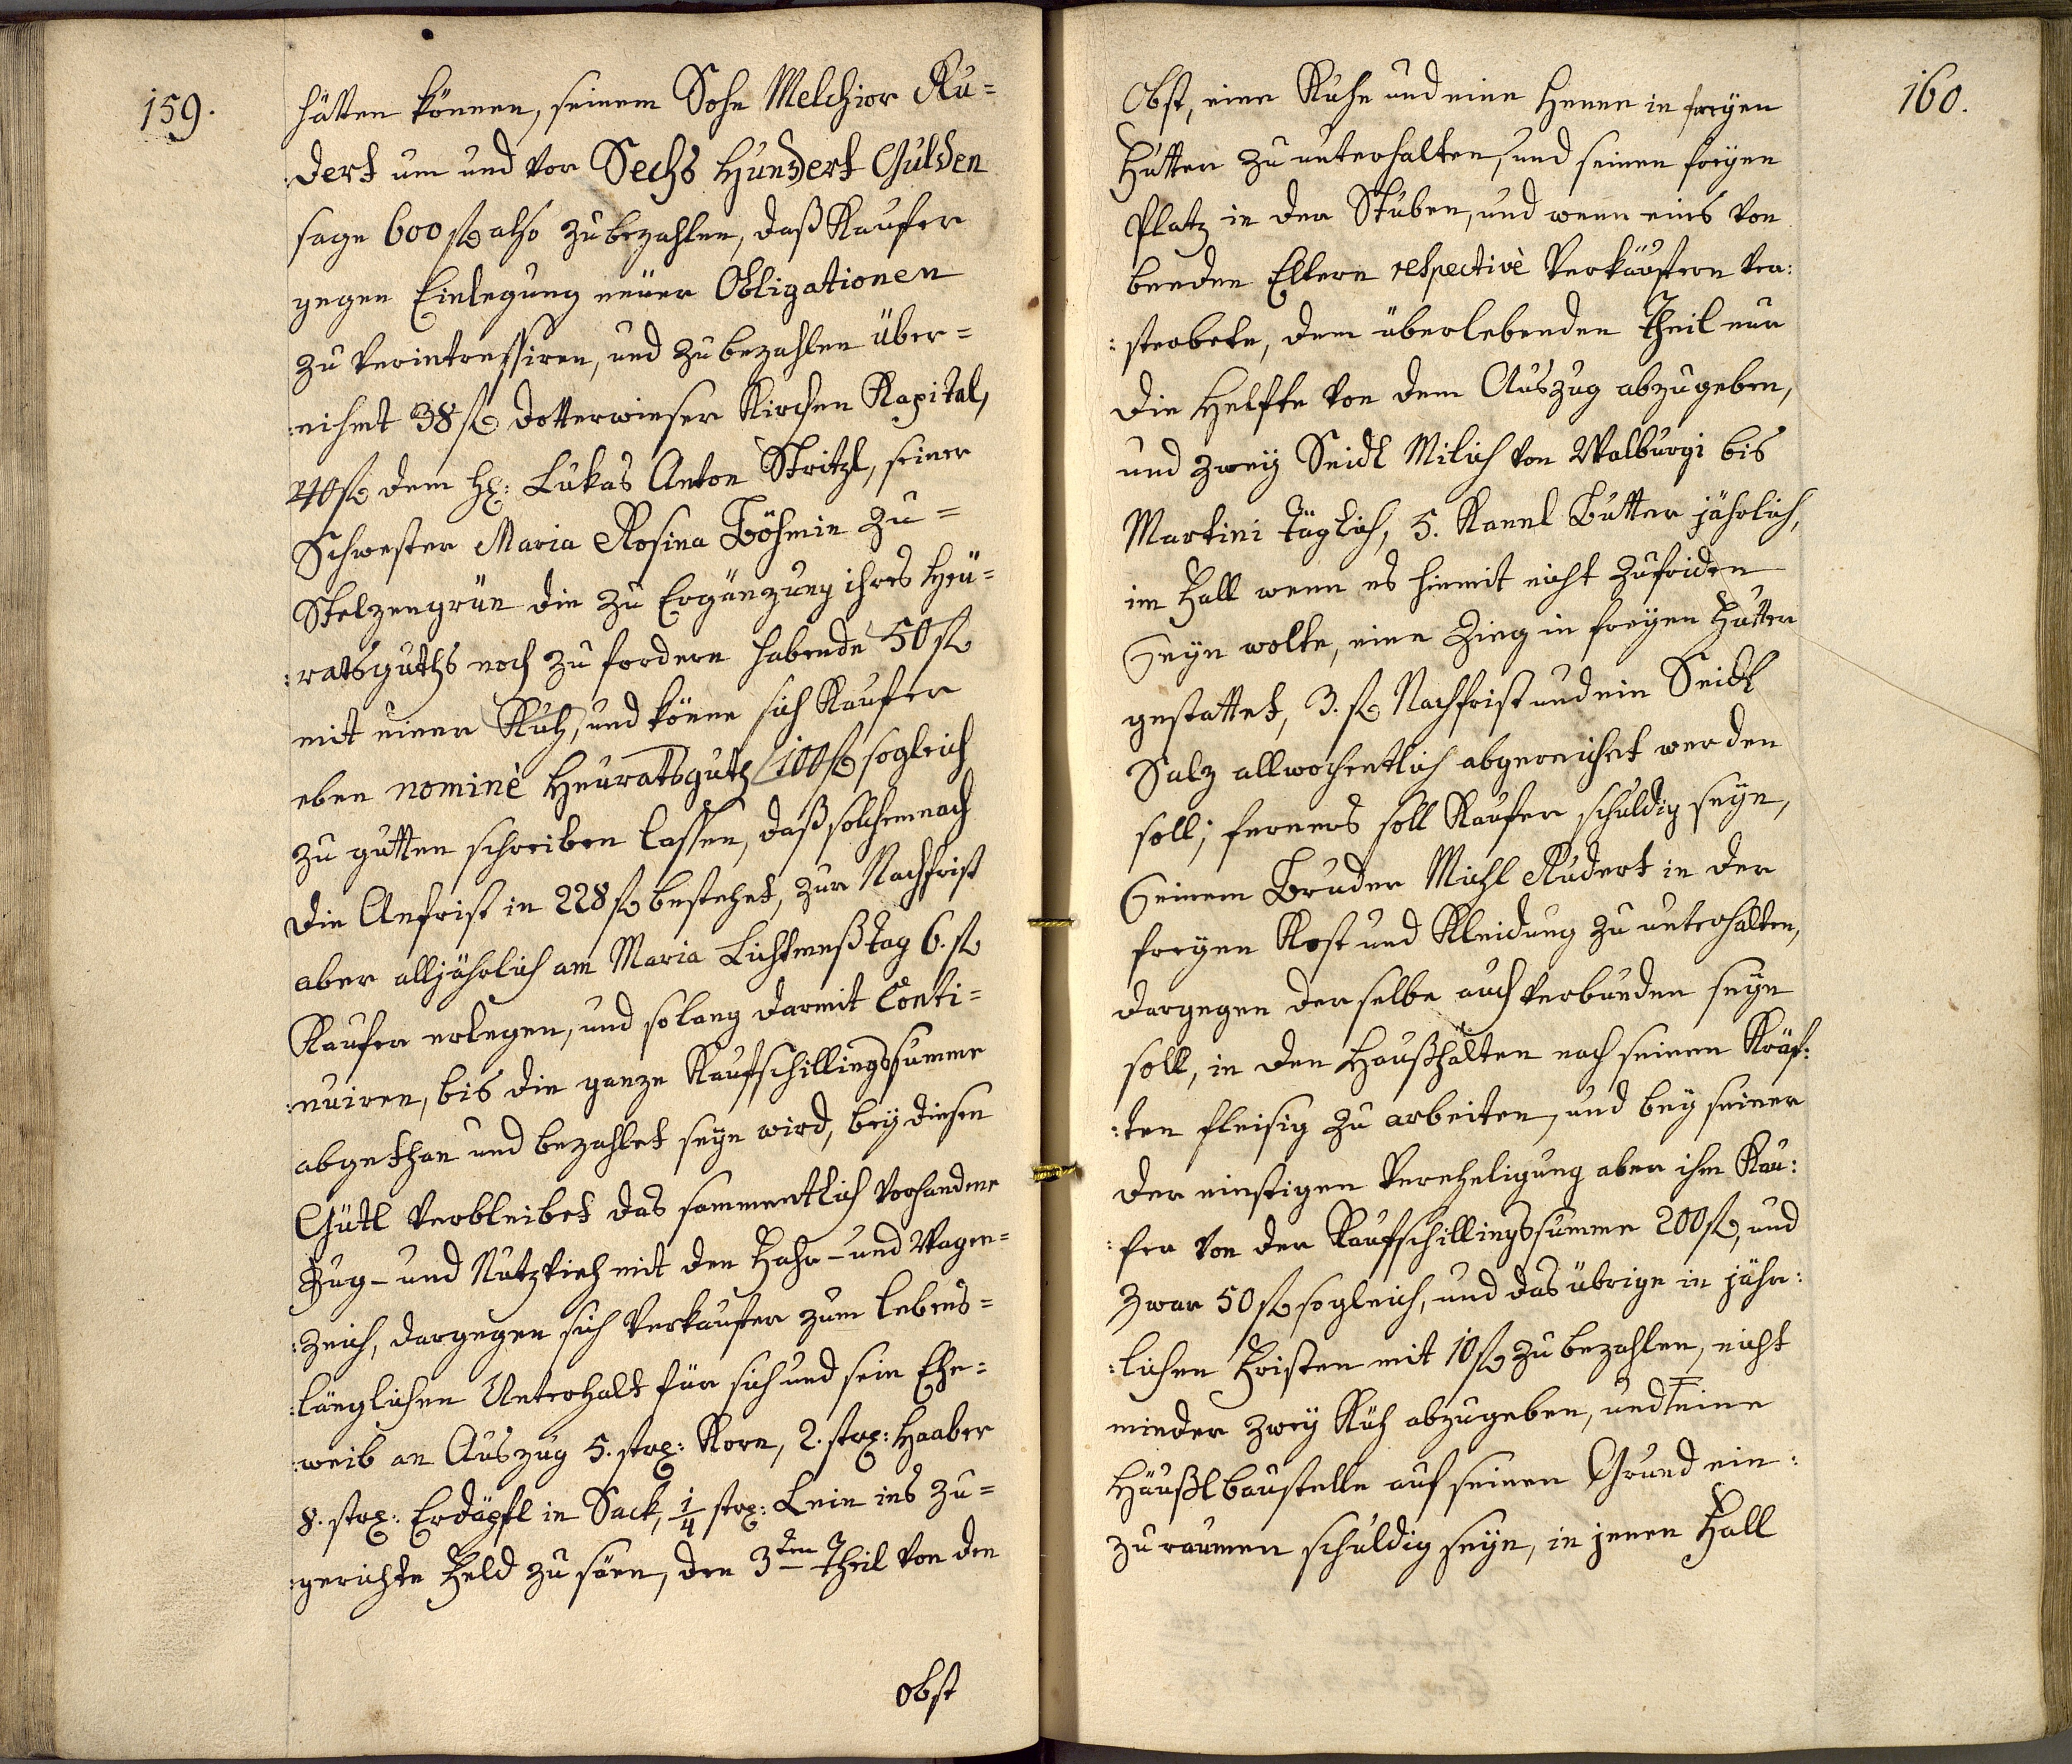 159.
hätten können, seinem Sohn Melchior Ru=
dert um und vor Sechs Hundert Gulden
sage 600 fl also zu bezahlen, daß Kaufer
gegen Einlegung neuer Obligationen
zu verintressiren, und zu bezahlen über=
:nihmt 38 fl Dotterwieser Kirchen Kapital,
240 fl dem H: Lukas Anton Stritzl, seiner
Schwester Maria Rosina Böhmin zu=
Stelzengrün die zu Ergänzung ihres Heu=
:ratsguths noch zu fordern habende 50 fl
mit einer Kuh, und könne sich Kaufer
eben nominè Heuratsguth 100 fl sogleich
zu gutten schreiben lassen, daß solchemnach
die Anfrist in 228 fl bestehet, zur Nachfrist
aber alljährlich am Maria Lichtmeßtag 6. fl
Kaufer erlegen, und so lang darmit Conti=
:nuiren, bis die ganze Kaufschillingssumme
abgethan und bezahlet seyn wird, bey diesen
Gütl verbleibet das sammentlich vorhandene
Zug- und Nutzvieh mit den Fahr- und Wagen=
:zeich, dargegen sich Verkaufer zum lebens=
:länglichen Unterhalt für sich und sein Ehe=
:weib an Auszug 5. str: Korn, 2. str: Haaber
8. str: Erdäpfl in Sack, 1/4 str: Lein ins zu=
:gerichte Feld zu säen, den 3ten Theil von den
obst
160.
Obst, eine Kuhe und eine Henne in freyen
Futter zu unterhalten, und seinen freyen
Platz in der Stuben, und wenn eins von
beeden Eltern respectivè Verkäufern ver:
:sterbete, dem überlebenden Theil nur
die Helfte von dem Auszug abzugeben,
und zwey Seidl Milich von Walburgi bis
Martini täglich, 5. Kannl Butter jährlich,
im Fall wenn es hiemit nicht zufriden
seyn wolte, eine Zieg in freyen Futter
gestattet, 3. fl Nachfrist und ein Seidl
Salz allwochentlich abgereichet werden
soll; ferners soll Kaufer schuldig seyn,
seinem Bruder Michl Rudert in der
freyen Kost und Kleidung zu unterhalten,
dargegen derselbe auch verbunden seyn
soll, in den Haußhalten nach seinen Kräf:
:ten fleisig zu arbeiten, und bey seiner
der einstigen Vereheligung aber ihm Kau:
:fer von der Kaufschillingssumme 200 fl, und
zwar 50 fl sogleich, und das übrige in jähr:
:lichen Fristen mit 10 fl zu bezahlen, nicht
minder zwey Küh abzugeben, und eine
Häußlbaustelle auf seinen Grund ein:
zu raumen schuldig seyn, in jenen Fall